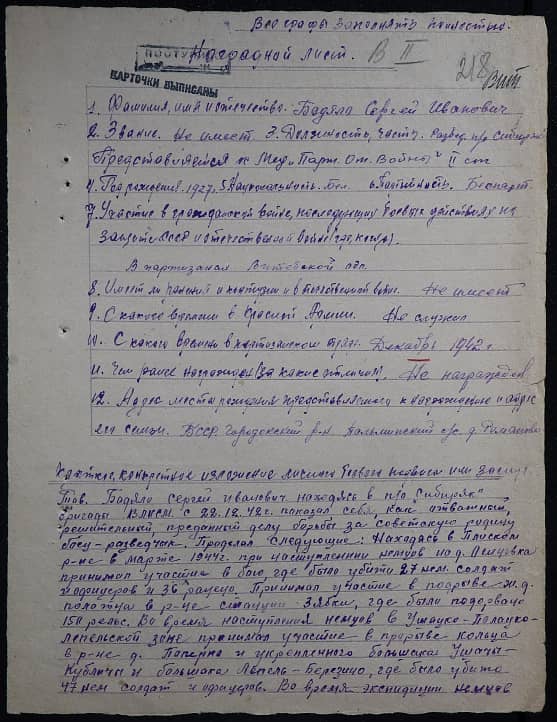 Все графы заполнять полностью.
Наградной лист. В II
ПОСТУ
218
Вит.
КАРТОЧКИ ВЫПИСАНЫ
1. Фамилия, имя и отечество. Бадяло Сергей Иванович
2. Звание. Не имеет 3. Должность, часть. Развед. п/о Сибиряк
Представляется к Мед. „Парт. От. Войны" II ст
4. Год рождения 1927г. 5 Национальность. Бел. 6. Партийность. Беспарт.
7. Участие в гражданской войне, последующих боевых действиях на
защите СССР и отечественной войне (где, когда).
В партизанах Витебской обл.
8. Имеет ли ранения и контузии в отечественной войне. Не имеет
9. С какого времени в Красной Армии. Не служил
10. С какого времени в партизанском отряде. Декабрь 1942 г
11. Чем ранее награжден (за какие отличия). Не награжден
12. Адрес места рождения представляемого к награждению и адрес
его семьи. БССР Городокский р-н Пальминский с/с д. Романово
Краткое, конкретное изложение личного боевого подвига или заслуг
Тов. Бадяло Сергей Иванович находясь в п/о „Сибиряк"
бригады ВЛКСМ с 22.12.42г. показал себя, как отважный,
решительный, преданный делу борьбы за советскую родину
боец-разведчик. Проделал следующие: Находясь в Плиском
р-не в марте 1944г. при наступлении немцев на д.
принимал участие в бою где было убито 27 нем. солдат
и офицеров и 36 ранено. Принимал участие в подрыве ж.д.
полотна в р-не станции Зябки, где было подорвано
150 рельс. Во время наступления немцев в Ушачо-Полоцко-
лепельской зоне принимал участие в прорыве кольца
в р-не д. Паперно и укрепленного большака Ушачи-
Кубличи и большака Лепель-Березино, где было убито
47 нем солдат и офицеров. Во время экспедиции немцев